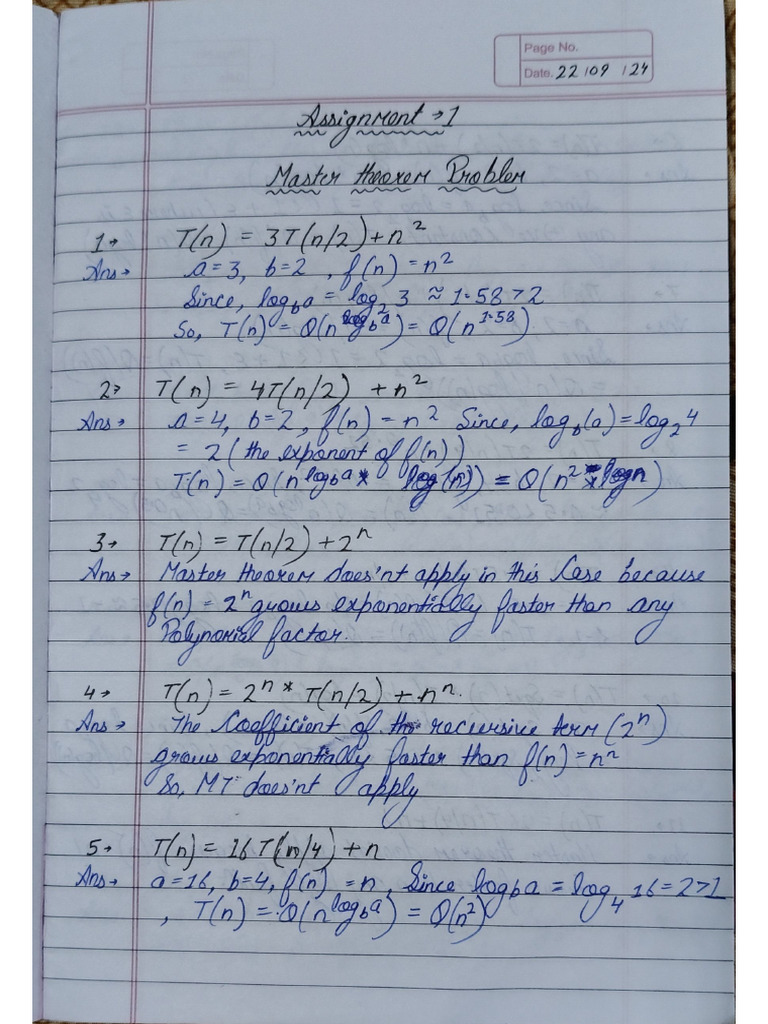 Page No.
Date. 22/09/24
Assignment → 1
Master theorem Problem
1→ T(n) = 3T(n/2) + n²
Ans→ a=3, b=2, f(n) = n²
Since, log_b a = log_2 3 ≈ 1.58 > 2
So, T(n) = O(n^{log_b a}) = O(n^{1.58})
2→ T(n) = 4T(n/2) + n²
Ans→ a=4, b=2, f(n) = n² Since, log_b(a) = log_2 4
= 2 (the exponent of f(n))
T(n) = O(n^{log_b a} * log(n)) = O(n² * logn)
3→ T(n) = T(n/2) + 2ⁿ
Ans→ Master theorem does'nt apply in this Case because
f(n) = 2ⁿ grows exponentially faster than any
Polynomial factor.
4→ T(n) = 2ⁿ * T(n/2) + nⁿ.
Ans→ The Coefficient of the recursive term (2ⁿ)
grows exponentially faster than f(n) = nⁿ
So, MT does'nt apply
5→ T(n) = 16T(n/4) + n
Ans→ a=16, b=4, f(n) = n, Since log_b a = log_4 16 = 2 > 1
, T(n) = O(n^{log_b a}) = O(n²)